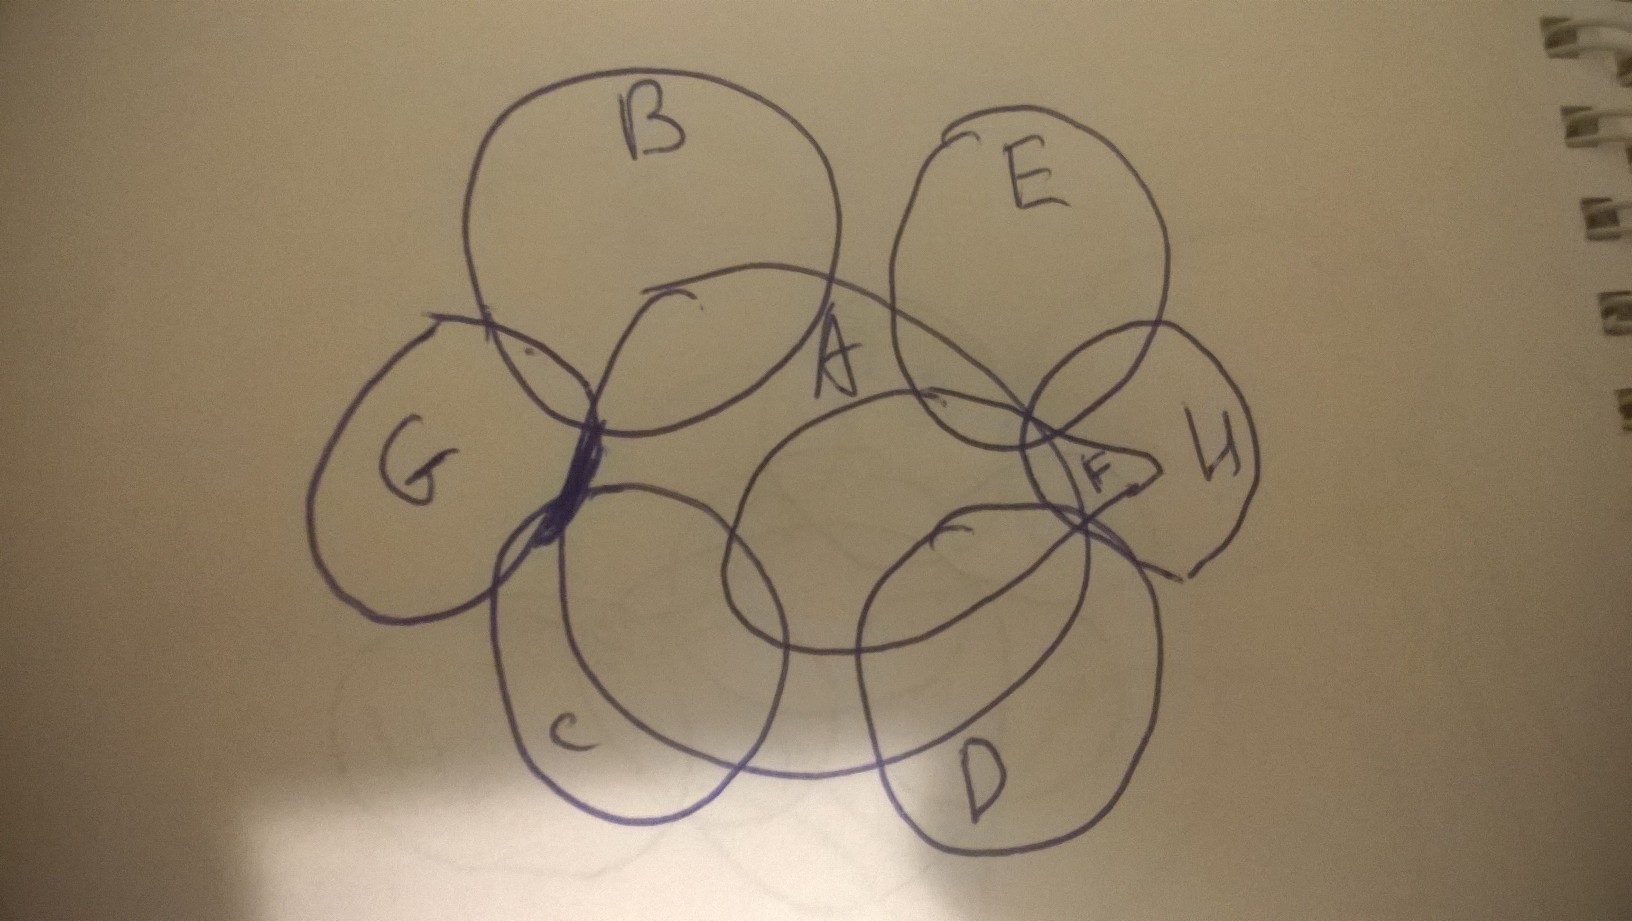 B
E
A
G
F
H
C
D